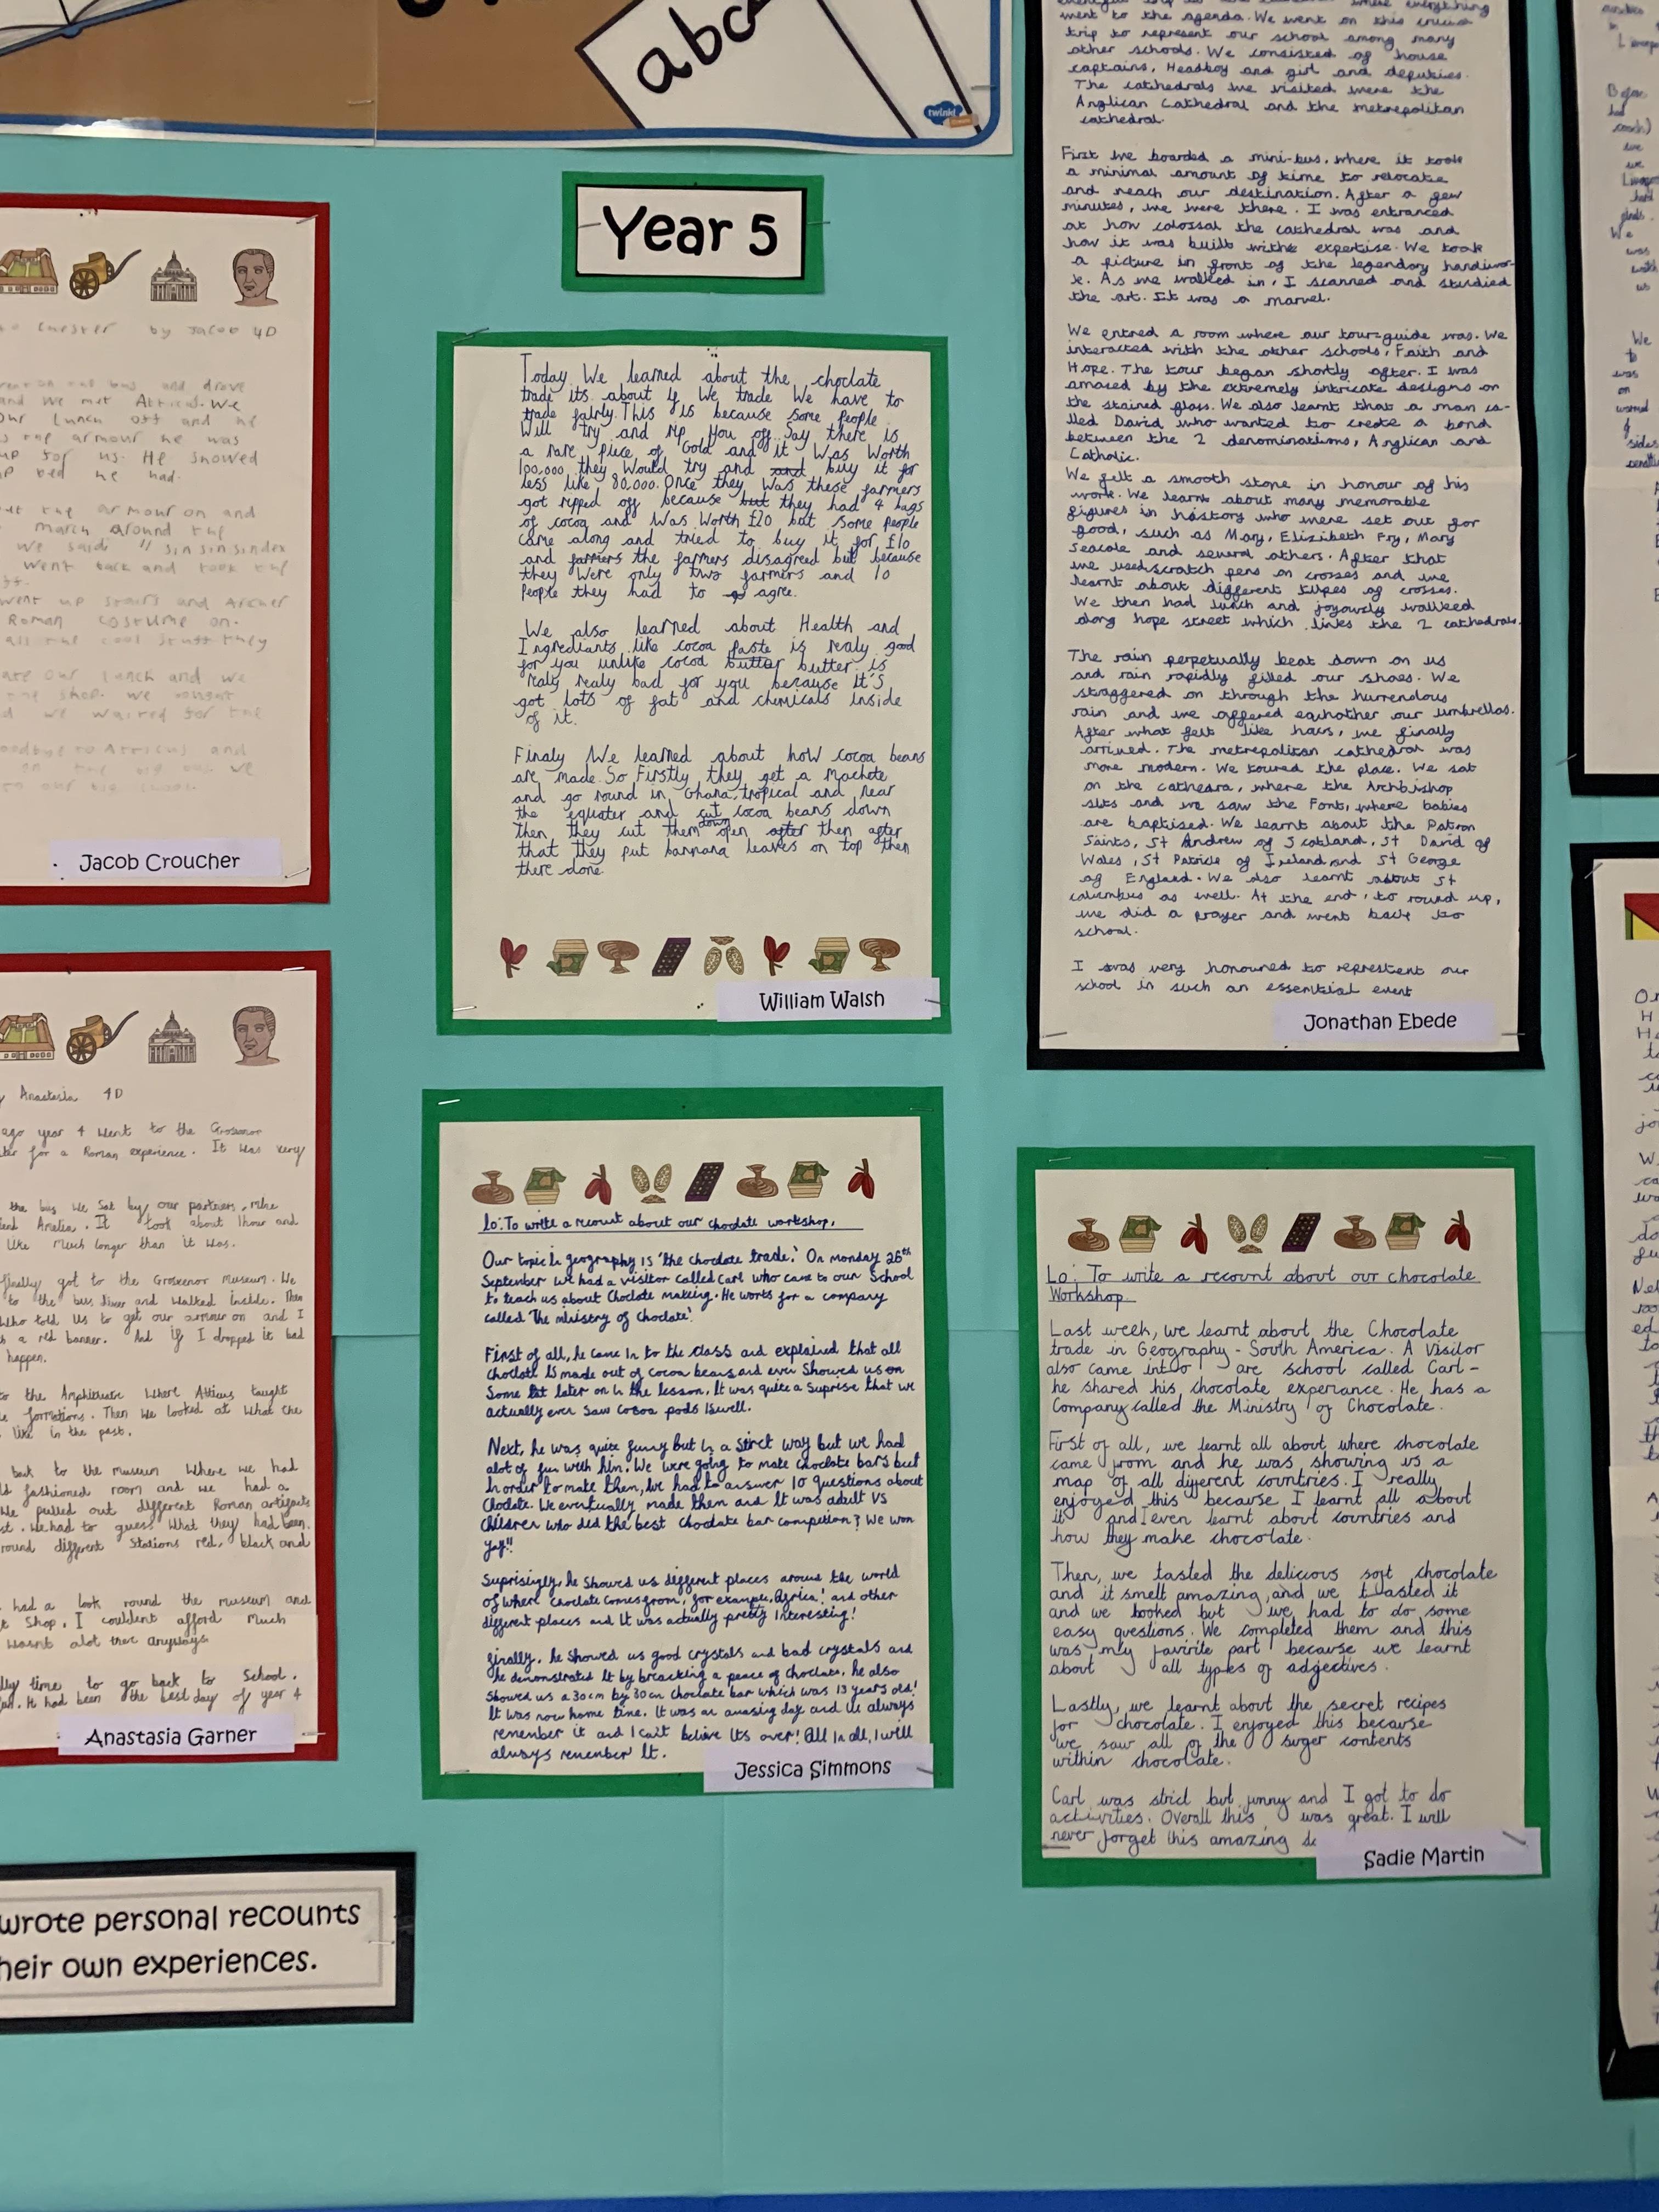 abc
twinkl
Year 5
to Chester by Jacob 4D
and drove
and We met Atticus. We
our Lunch off and he
the armour he was
up for us. He showed
bed he had.
the armour on and
march around the
We said "sin sin sindex
went back and took the
went up stairs and Archer
Roman costume on.
all the cool stuff they
ate our lunch and we
the shop. We bought
we waited for the
goodbye to Atticus and
on the big bus. We
Jacob Croucher
Anastasia 4D
ago year 4 went to the Grosvenor
for a Roman experience. It was very
the bus we sat by our partners, mine
Amelia. It took about 1hour and
like much longer than it was.
finally got to the Grosvenor Museum. We
to the bus driver and walked inside. Then
who told us to get our armour on and I
a red banner. And if I dropped it bad
happen.
to the Amphitheatre Where Atticus taught
formations. Then we looked at what the
like in the past.
back to the museum where we had
fashioned room and we had a
We pulled out different Roman artifacts
We had to guess what they had been.
round different stations red, black and
had a look round the museum and
Shop. I couldent afford much
wasnt alot ther anyways
time to go back to School.
It had been the best day of year 4
Anastasia Garner
wrote personal recounts
heir own experiences.
Today We learned about the choclate
trade its about if We trade We have to
trade fairly. This is because some people
Will try and rip you off. Say there is
a rare piece of Gold and it Was Worth
100,000 they Would try and and buy it for
less like 80,000. Once they Was these farmers
got ripped off because but they had 4 bags
of cocoa and Was Worth £20 but some people
came along and tried to buy it for £10
and farmers the farmers disagreed but because
they Were only two farmers and 10
people they had to agree.
We also learned about Health and
Ingrediants, like cocoa paste is realy good
for you unlike cocoa butter butter is
realy realy bad for you because it's
got lots of fat and chemicals inside
of it.
Finaly We learned about how cocoa beans
are made. So Firstly they get a Machete
and go round in Ghana, tropical and near
the equater and cut cocoa beans down
then they cut them down open after then after
that they put bannana leaves on top then
there done.
William Walsh
Lo: To write a recount about our choclate workshop.
Our topic in geography is 'the choclate trade.' On monday 26th
September we had a visitor called Carl who came to our School
to teach us about Choclate making. He works for a company
called 'The ministry of Choclate'.
First of all, he came in to the class and explained that all
choclate is made out of cocoa beans and even showed us on
Some later on in the lesson. It was quite a Suprise that we
actually even saw cocoa pods aswell.
Next, he was quite funny but in a strict way but we had
alot of fun with him. We were going to make choclate bars but
in order to make them, we had to answer 10 questions about
Choclate. We eventually made them and it was adult VS
Children who did the best choclate bar competion? We won
yay!!
Suprisigly, he showed us different places around the world
of where choclate comes from, for example, Africa! and other
different places and it was actually pretty interesting!
finally, he showed us good crystals and bad crystals and
he demonstrated it by breacking a peace of choclate. he also
showed us a 30cm by 30cm choclate bar which was 13 years old!
It was now home time. It was an amasing day and ill always
remember it and I can't believe its over! All in all, I will
always remember it.
Jessica Simmons
went to the agenda. We went on this
trip to represent our school among many
other schools. We consisted of house
captains, Headboy and girl and deputies.
The cathedrals we visited were the
Anglican Cathedral and the metrepolitan
cathedral.
First we boarded a mini-bus, where it took
a minimal amount of time to relocate
and reach our destination. After a few
minutes, we were there. I was entranced
at how colossal the cathedral was and
how it was built with expertise. We took
a picture in front of the legendary handiwor-
k. As we walked in, I scanned and studied
the art. It was a marvel.
We entred a room where our tour-guide was. We
interacted with the other schools, Faith and
Hope. The tour began shortly after. I was
amazed by the extremely intricate designs on
the stained glass. We also learnt that a man ca-
lled David who wanted to create a bond
between the 2 denominations, Anglican and
Catholic.
We felt a smooth stone in honour of his
work. We learnt about many memorable
figures in history who were set out for
good, such as Mary, Elizibeth Fry, Mary
Seacole and several others. After that
we used scratch pens on crosses and we
learnt about different types of crosses.
We then had lunch and joyously walked
along hope street which links the 2 cathedrals.
The rain perpetually beat down on us
and rain rapidly filled our shoes. We
straggered on through the hurrendous
rain and we offered eachother our umbrellas.
After what felt like hours, we finally
arrived. The metrepolitan cathedral was
more modern. We toured the place. We sat
on the catheara, where the Archbishop
sits and we saw the Font, where babies
are baptised. We learnt about the Patron
Saints, St Andrew of Scotland, St David of
Wales, St Patrick of Ireland and St George
of England. We also learnt about St
columbus as well. At the end, to round up,
we did a prayer and went back to
school.
I was very honoured to represtent our
school in such an essential event
Jonathan Ebede
Lo: To write a recount about our chocolate
Workshop.
Last week, we learnt about the Chocolate
trade in Geography - South America. A Visitor
also came into are school called Carl -
he shared his chocolate experiance. He has a
Company called the Ministry of Chocolate.
First of all, we learnt all about where chocolate
came from and he was showing us a
map of all diyerent countries. I really
enjoyed this because I learnt all about
it and I even learnt about countries and
how they make chocolate.
Then, we tasted the delicious soft chocolate
and it smelt amazing, and we toasted it
and we booked but we had to do some
easy questions. We completed them and this
was my favirite part because we learnt
about all types of adjectives.
Lastly, we learnt about the secret recipes
for chocolate. I enjoyed this because
we saw all of the suger contents
within chocolate.
Carl was strict but funny and I got to do
activities. Overall this was great. I will
never forget this amazing
Sadie Martin